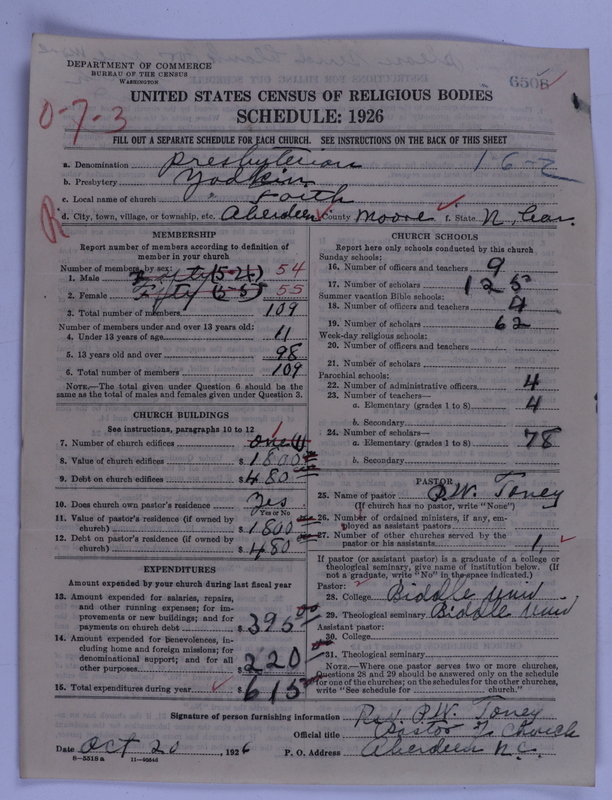 DEPARTMENT OF COMMERCE
BUREAU OF THE CENSUS
WASHINGTON
6508
UNITED STATES CENSUS OF RELIGIOUS BODIES
SCHEDULE: 1926
0-7-3
FILL OUT A SEPARATE SCHEDULE FOR EACH CHURCH. SEE INSTRUCTIONS ON THE BACK OF THIS SHEET
a. Denomination Presbyterian
1-6-2
b. Presbytery Yadkin
c. Local name of church Faith
R
d. City, town, village, or township, etc. Aberdeen County Moore f. State N. Car.
MEMBERSHIP
Report number of members according to definition of
member in your church
Number of members, by sex:
1. Male 54
2. Female Fifty (55) 55
3. Total number of members 109
Number of members under and over 13 years old:
4. Under 13 years of age 11
5. 13 years old and over 98
6. Total number of members 109
NOTE.—The total given under Question 6 should be the
same as the total of males and females given under Question 3.
CHURCH BUILDINGS
See instructions, paragraphs 10 to 12
7. Number of church edifices one (1)
8. Value of church edifices $ 1800
9. Debt on church edifices $ 480
10. Does church own pastor's residence Yes
(Yes or No)
11. Value of pastor's residence (if owned by
church) $ 1800
12. Debt on pastor's residence (if owned by
church) $ 480
EXPENDITURES
Amount expended by your church during last fiscal year
13. Amount expended for salaries, repairs,
and other running expenses; for im-
provements or new buildings; and for
payments on church debt $ 395 00
14. Amount expended for benevolences, in-
cluding home and foreign missions; for
denominational support; and for all
other purposes $ 220
15. Total expenditures during year $ 615
CHURCH SCHOOLS
Report here only schools conducted by this church
Sunday schools:
16. Number of officers and teachers 9
17. Number of scholars 125
Summer vacation Bible schools:
18. Number of officers and teachers 4
19. Number of scholars 62
Week-day religious schools:
20. Number of officers and teachers
21. Number of scholars
Parochial schools:
22. Number of administrative officers 4
23. Number of teachers—
a. Elementary (grades 1 to 8) 4
b. Secondary
24. Number of scholars—
a. Elementary (grades 1 to 8) 78
b. Secondary
PASTOR
25. Name of pastor P.W. Toney
(If church has no pastor, write "None")
26. Number of ordained ministers, if any, em-
ployed as assistant pastors
27. Number of other churches served by the
pastor or his assistants 1
If pastor (or assistant pastor) is a graduate of a college or
theological seminary, give name of institution below. (If
not a graduate, write "No" in the space indicated.)
Pastor:
28. College Biddle Univ
29. Theological seminary Biddle Univ
Assistant pastor:
30. College
31. Theological seminary
NOTE.—Where one pastor serves two or more churches,
Questions 28 and 29 should be answered only on the schedule
for one of the churches; on the schedules for the other churches,
write "See schedule for church."
Signature of person furnishing information Rev P.W. Toney
Official title Pastor of Church
Date Oct 20, 1926 P. O. Address Aberdeen N.C.
8-5518a 11-9084d